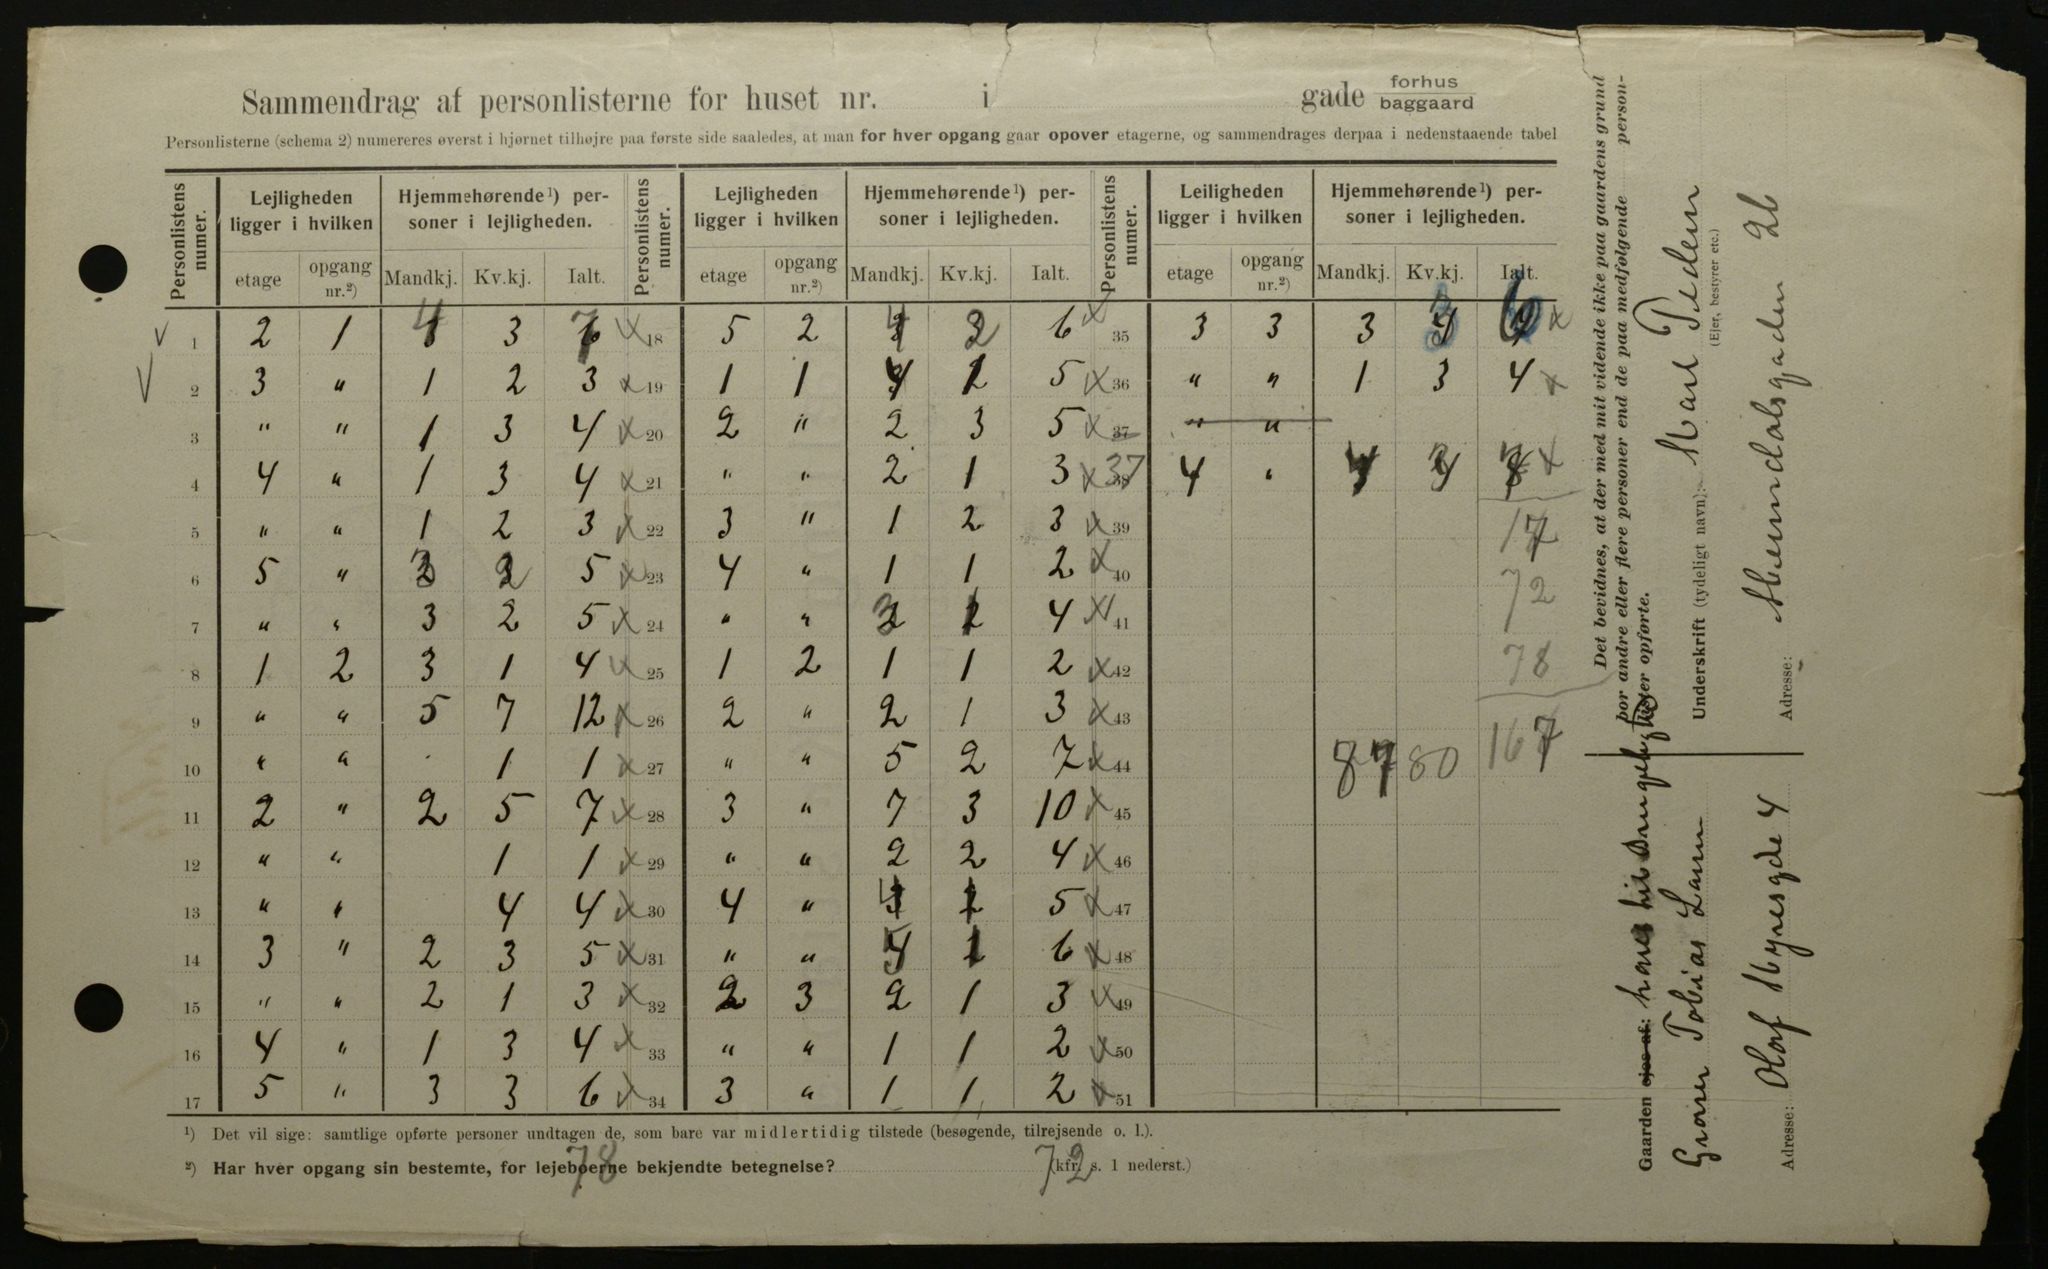 Sammendrag af personlisterne for huset nr. i gade forhus baggaard
Personlisterne (schema 2) numereres øverst i hjørnet tilhøjre paa første side saaledes, at man for hver opgang gaar opover etagerne, og sammendrages derpaa i nedenstaaende tabel
Personlistens numer. Lejligheden ligger i hvilken Hjemmehørende¹) personer i lejligheden. Personlistens numer. Lejligheden ligger i hvilken Hjemmehørende¹) personer i lejligheden. Personlistens numer. Leiligheden ligger i hvilken Hjemmehørende¹) personer i lejligheden.
etage opgang nr.²) Mandkj. Kv.kj. Ialt. etage opgang nr.²) Mandkj. Kv.kj. Ialt. etage opgang nr.²) Mandkj. Kv.kj. Ialt.
1 2 1 4 3 7 x 18 5 2 4 2 6 x 35 3 3 3 3 6 x
2 3 " 1 2 3 x 19 1 1 4 1 5 x 36 " " 1 3 4 x
3 " " 1 3 4 x 20 2 " 2 3 5 x 37 " "
4 4 " 1 3 4 x 21 " " 2 1 3 x 37 4 " 4 3 7 x
5 " " 1 2 3 x 22 3 " 1 2 3 x 39 17
6 5 " 3 2 5 x 23 4 " 1 1 2 x 40 72
7 " " 3 2 5 x 24 " " 3 1 4 x 41
8 1 2 3 1 4 x 25 1 2 1 1 2 x 42 78
9 " " 5 7 12 x 26 2 " 2 1 3 x 43
10 " " . 1 1 x 27 " " 5 2 7 x 44 87 80 167
11 2 " 2 5 7 x 28 3 " 7 3 10 x 45
12 " " 1 1 x 29 " " 2 2 4 x 46
13 " " 4 4 x 30 4 " 4 1 5 x 47
14 3 " 2 3 5 x 31 " " 5 1 6 x 48
15 " " 2 1 3 x 32 2 3 2 1 3 x 49
16 4 " 1 3 4 x 33 " " 1 1 2 x 50
17 5 " 3 3 6 x 34 3 " 1 1 2 x 51
¹) Det vil sige: samtlige opførte personer undtagen de, som bare var midlertidig tilstede (besøgende, tilrejsende o. l.).
²) Har hver opgang sin bestemte, for lejeboerne bekjendte betegnelse? (kfr. s. 1 nederst.)
78 72
Det bevidnes, at der med mit vidende ikke paa gaardens grund
bor andre eller flere personer end de paa medfølgende person-
lister opførte.
Underskrift (tydeligt navn): Karl Pedern
(Ejer, bestyrer etc.)
Adresse: Stemdalsgaden 26
Gaarden ejes af:
Graner Tobias Larm
Adresse: Olaf Kyresgde 4